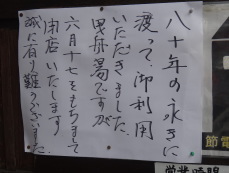 八十年の永きに
渡って、御利用
いただきました
曳舟湯ですが
六月十七をもちまして
閉店いたします
誠に有り難うございました
節電
営業時間